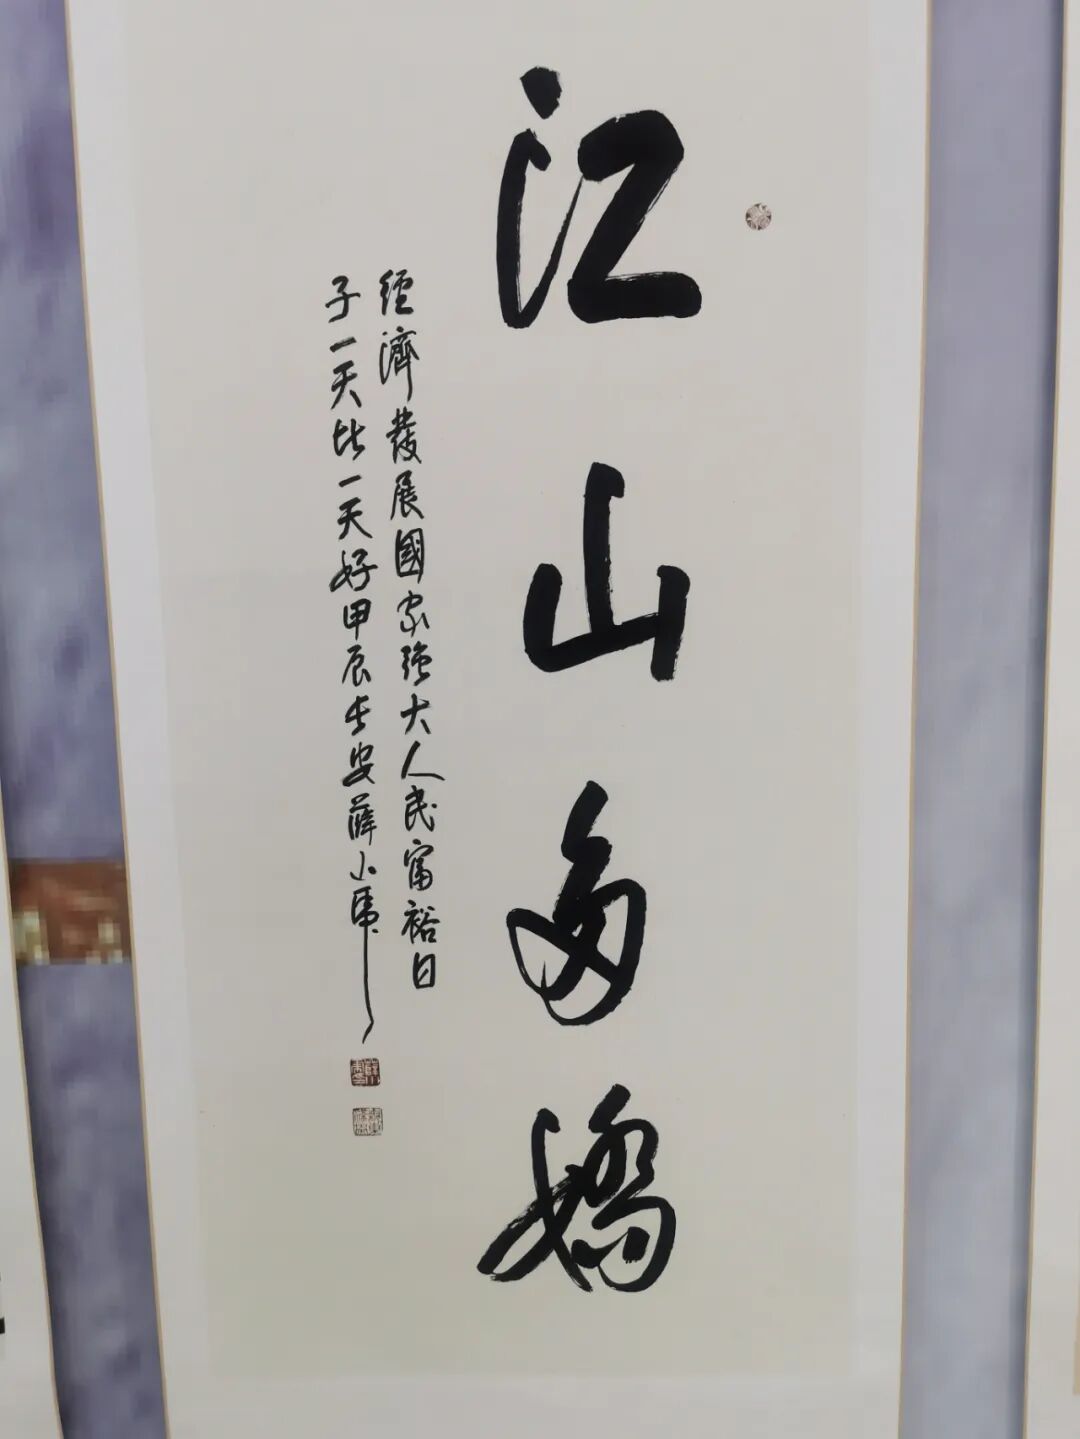 江山多嬌
經濟發展國家強大人民富裕日
子一天比一天好甲辰长安薛小虎